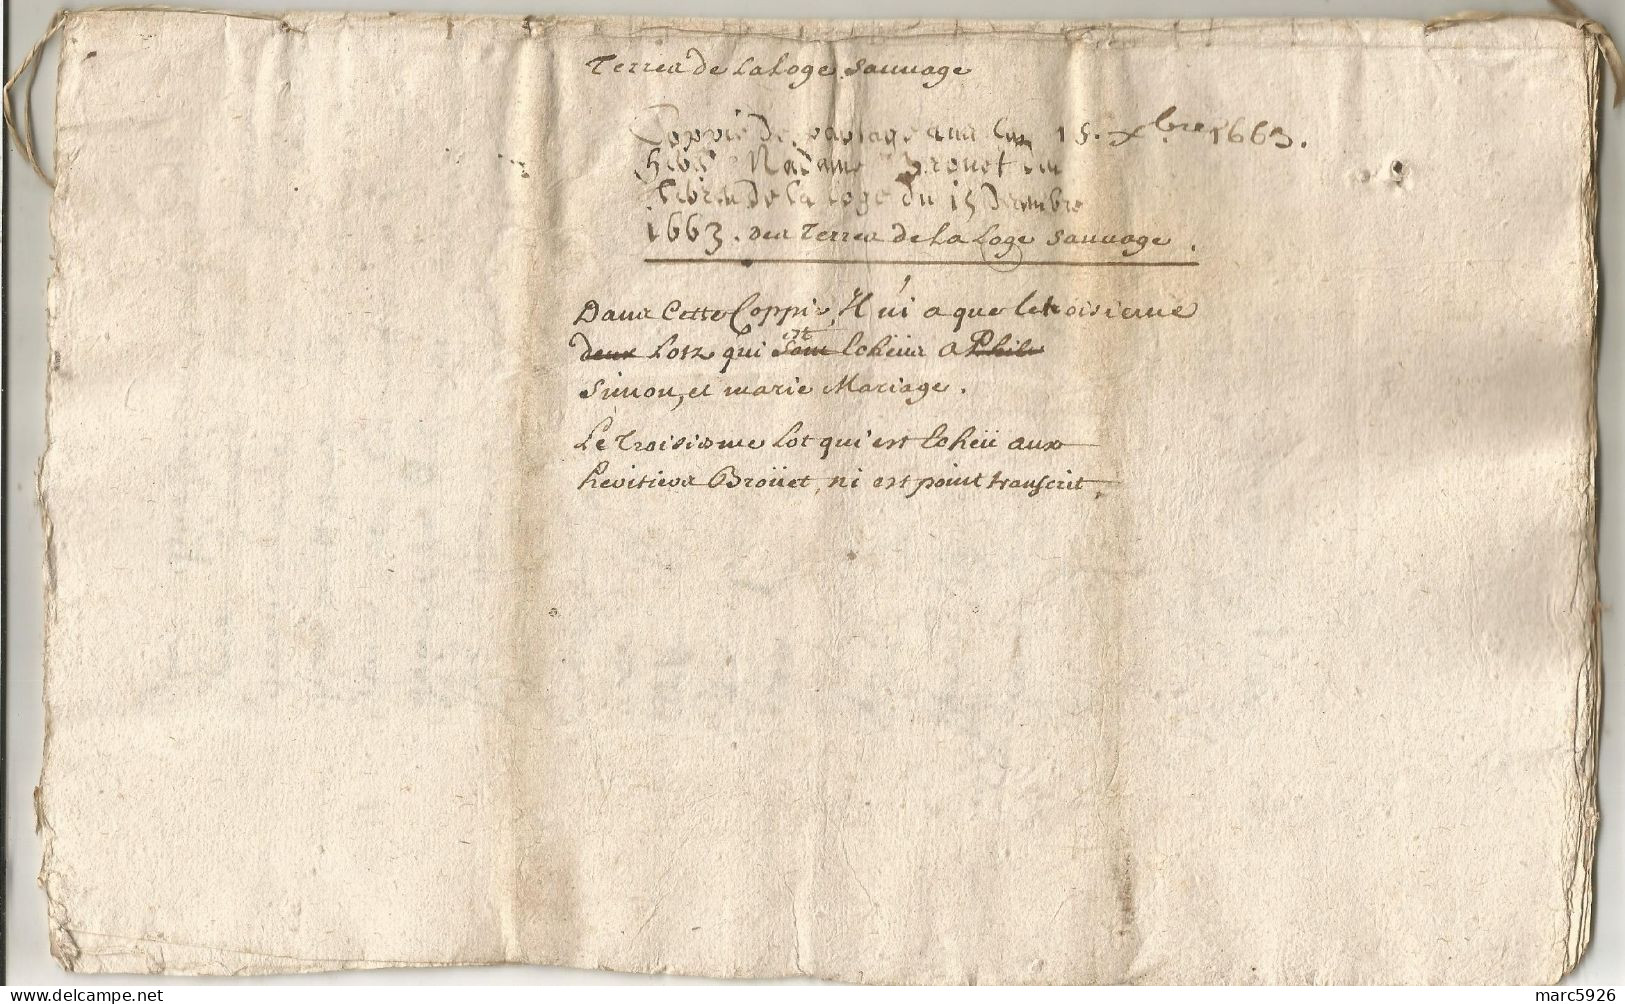 Terres de La Loge Sauvage
Coppie de partage 15. Xbre 1663.
Madame Brouet
Terres de la loge du 15 Decembre
1663. des Terres de La Loge Sauvage.
Dans Cette Coppie, Il ni a que le troisieme
deux Lots qui sont est Echeüs a Phile
Simon, et marie Mariage.
Le Troisiesme Lot qui est Echeü aux
heritiers Broüet, ni est point transcrit.
marc5926